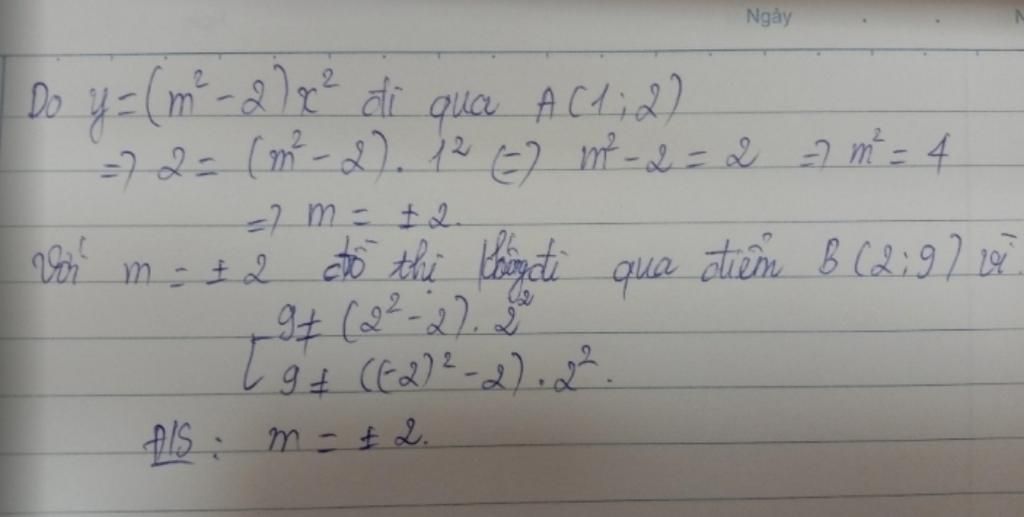 Ngày . .
Do y = (m² - 2)x² đi qua A(1; 2)
=> 2 = (m² - 2). 1² (=) m² - 2 = 2 => m² = 4
=> m = ± 2.
Với m = ± 2 đồ thị không đi qua điểm B(2; 9) vì.
9 ≠ (2² - 2). 2²
[ 9 ≠ ((-2)² - 2). 2².
Đ/S : m = ± 2.